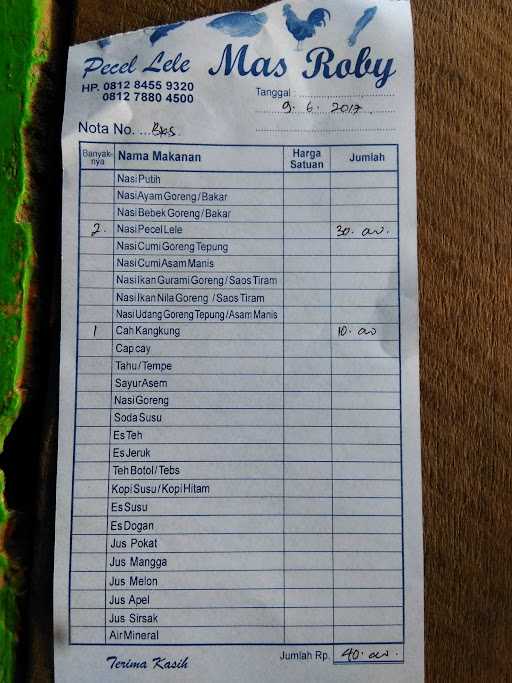 Pecel Lele Mas Roby
HP. 0812 8455 9320
0812 7880 4500
Tanggal :
9. 6. 2017
Nota No. ... Bks.
Banyak-nya Nama Makanan Harga Satuan Jumlah
Nasi Putih
Nasi Ayam Goreng / Bakar
Nasi Bebek Goreng / Bakar
2. Nasi Pecel Lele 30.
Nasi Cumi Goreng Tepung
Nasi Cumi Asam Manis
Nasi Ikan Gurami Goreng / Saos Tiram
Nasi Ikan Nila Goreng / Saos Tiram
Nasi Udang Goreng Tepung / Asam Manis
1 Cah Kangkung 10.
Cap cay
Tahu / Tempe
Sayur Asem
Nasi Goreng
Soda Susu
Es Teh
Es Jeruk
Teh Botol / Tebs
Kopi Susu / Kopi Hitam
Es Susu
Es Dogan
Jus Pokat
Jus Mangga
Jus Melon
Jus Apel
Jus Sirsak
Air Mineral
Terima Kasih Jumlah Rp. 40.